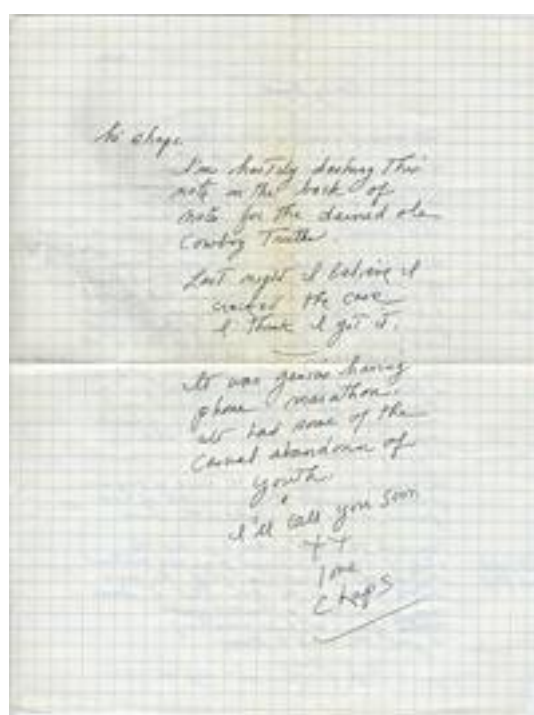 chaps
I'm hastily dashing this
note on the back of
note for the damned ole
Cowboy Truth.
Last night I believe I
cracked the case
I think I got it.
It was genius having
phone marathon.
it had some of the
casual abandonn of
youth.
I'll call you soon
++
love
chaps